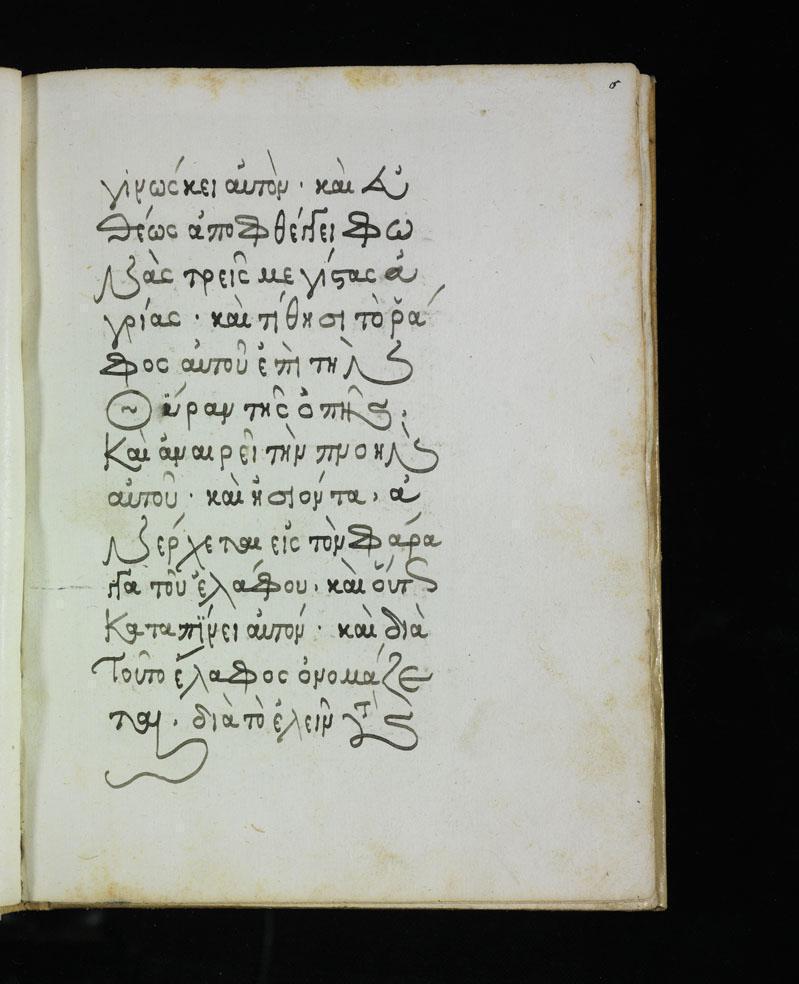 γινώσκει αὐτὸν · καὶ εὐ
θέως ἀποφθέγγει φω
νὰς τρεῖς μεγίστας ἀ
γρίας · καὶ τίθησι τὸ ῥά
φος αὐτοῦ ἐπὶ τὴν
θύραν τῆς ὀπῆς ·
Καὶ ἀναιρεῖ τὴν πνοὴν
αὐτοῦ · καὶ εἰσιόντα, ἀ
νέρχεται εἰς τὸν φάρα
γγα τοῦ ἐλάφου, καὶ οὕτως
Καταπίνει αὐτόν · καὶ διὰ
Τοῦτο ἔλαφος ὀνομάζε
ται, διὰ τὸ ἑλεῖν τοὺς